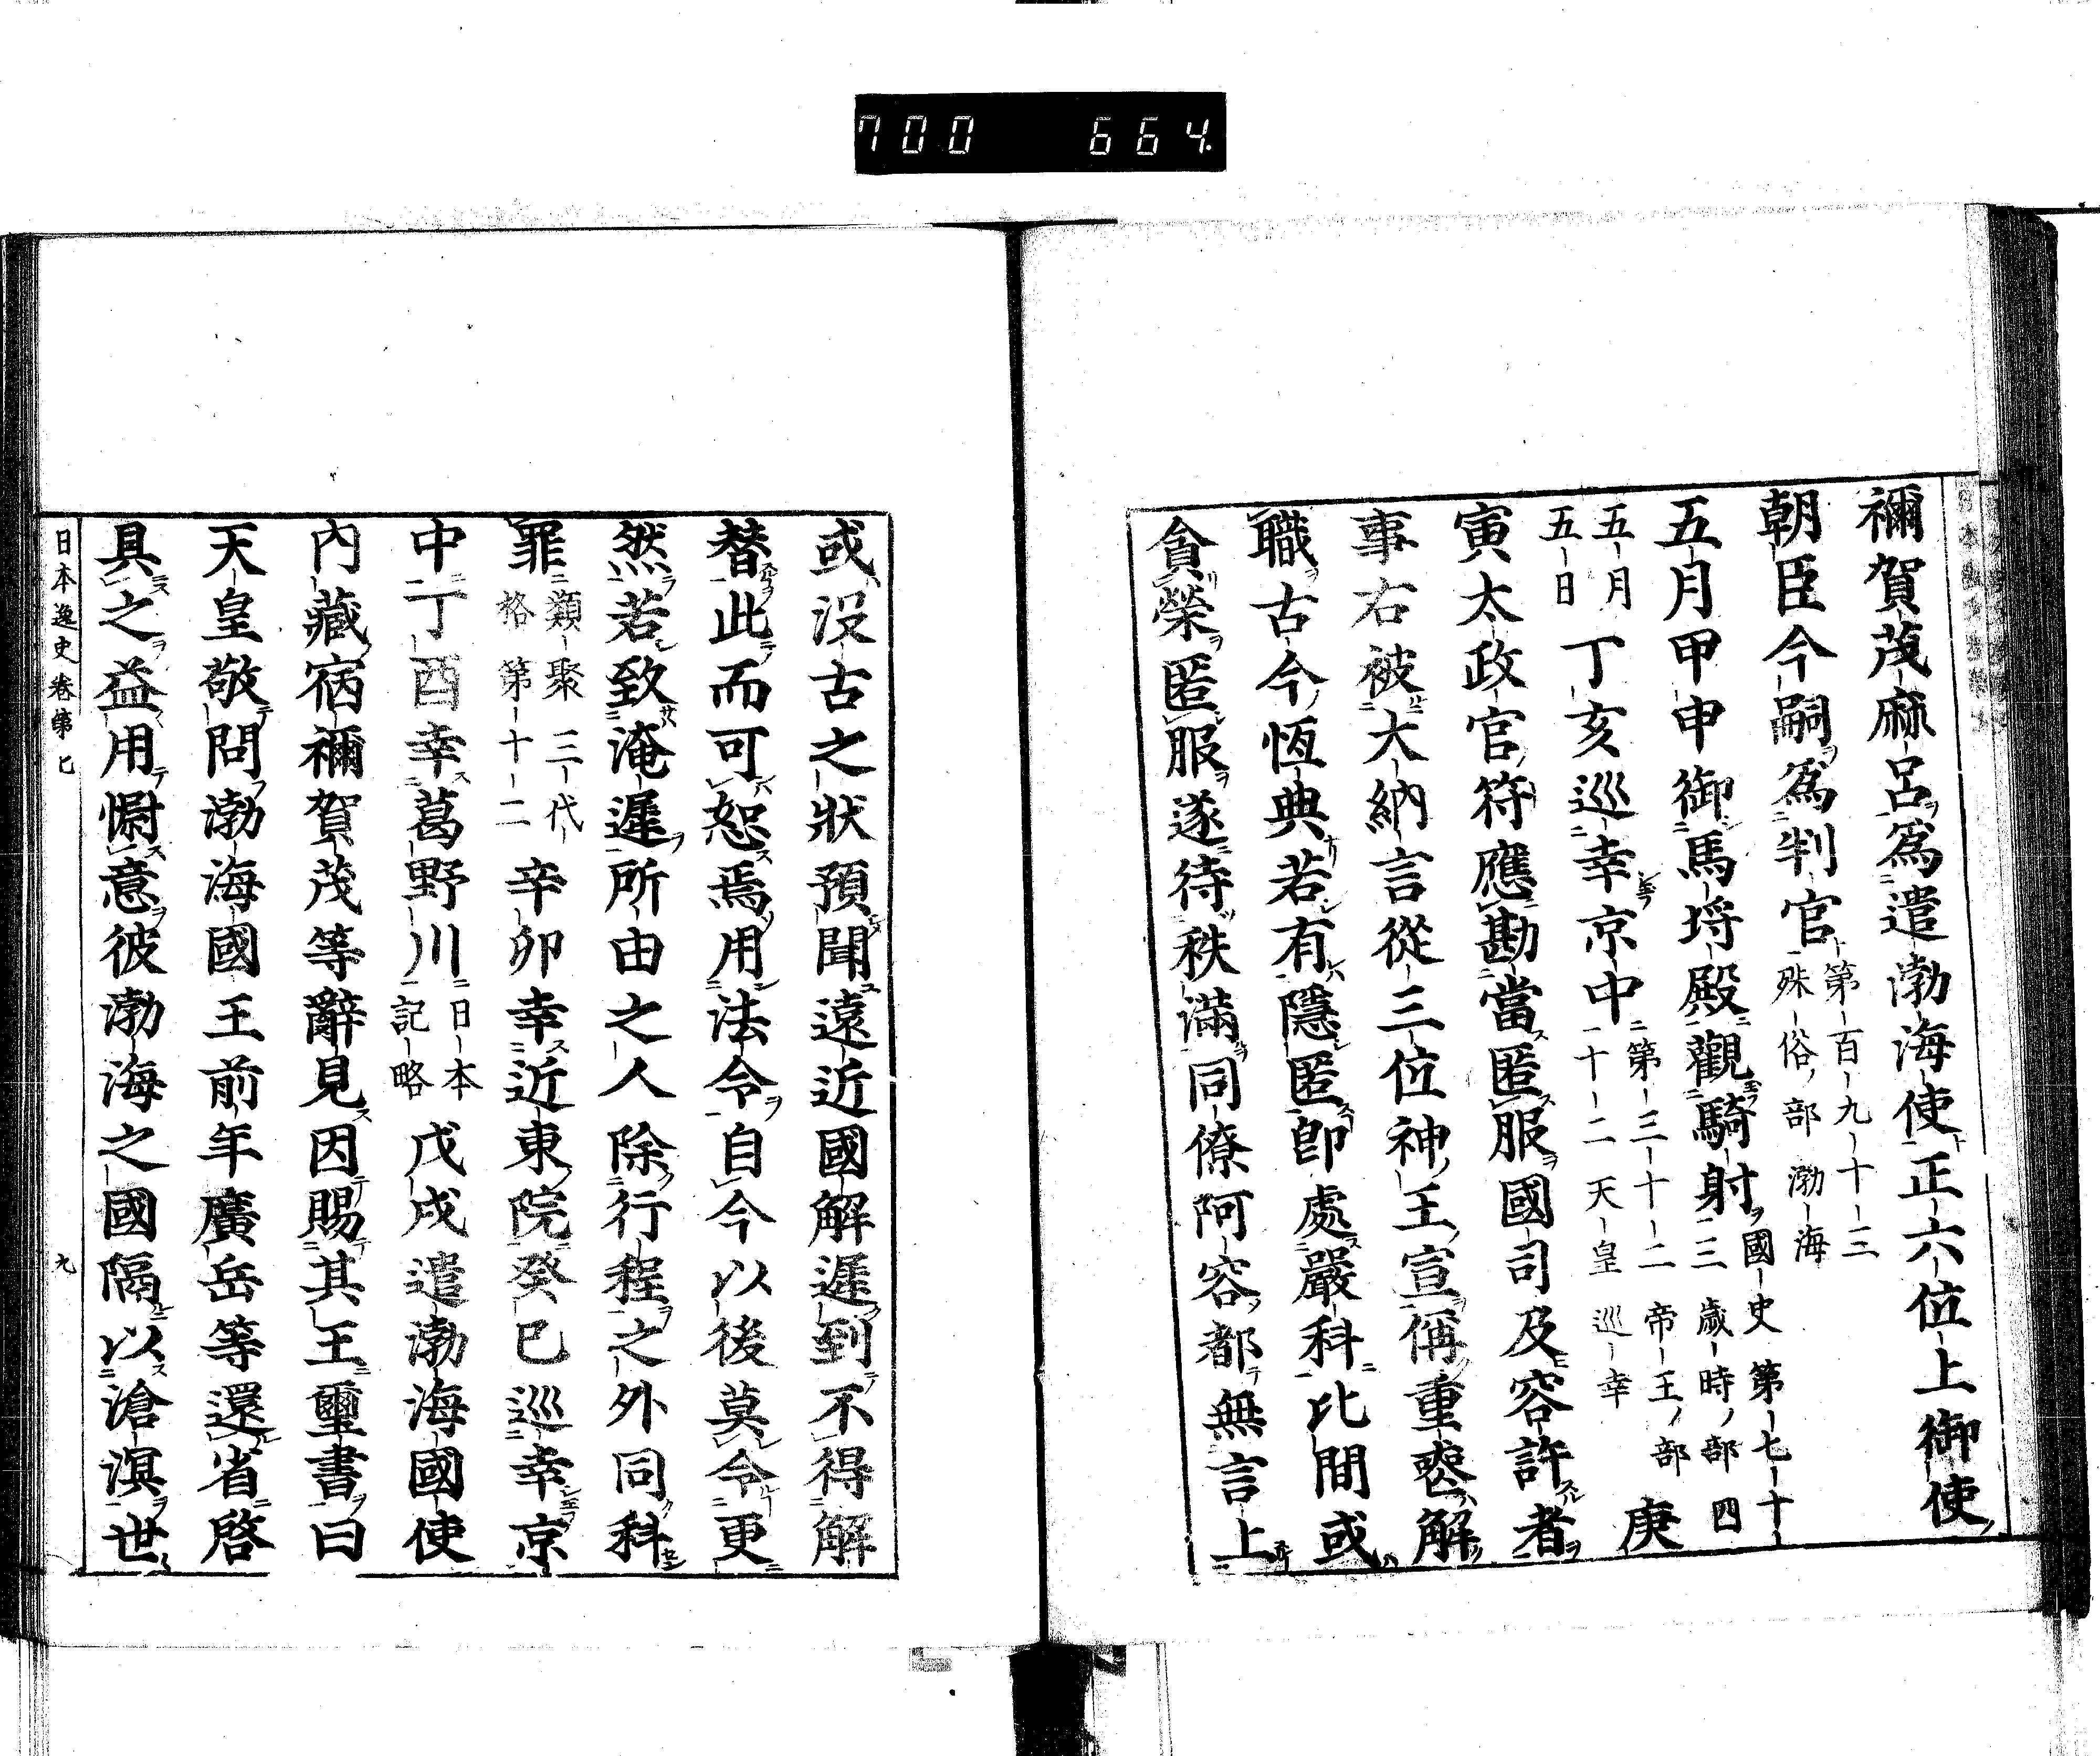 700 664.
禰賀茂麻呂爲遣渤海使正六位上御使
朝臣今嗣爲判官第百九十三
殊俗部渤海
五月甲申御馬埒殿觀騎射國史第七十
三歳時部四
五月
五日丁亥巡幸京中第三十二帝王部
十二天皇巡幸庚
寅太政官符應勘當匿服國司及容許者
事右被大納言從三位神王宣偁重喪解
職古今恆典若有隱匿卽處嚴科比間或
貪榮匿服遂待秩滿同僚阿容都無言上
或沒古之狀預聞遠近國解遲到不得解
替此而可恕焉用法令自今以後莫令更
然若致淹遲所由之人除行程之外同科
罪類聚三代
格第十二辛卯幸近東院癸巳巡幸京
中丁酉幸葛野川日本
記略戊戌遣渤海國使
內藏宿禰賀茂等辭見因賜其王璽書曰
天皇敬問渤海國王前年廣岳等還省啓
具之益用慰意彼渤海之國隔以滄溟世
日本逸史卷第七
九